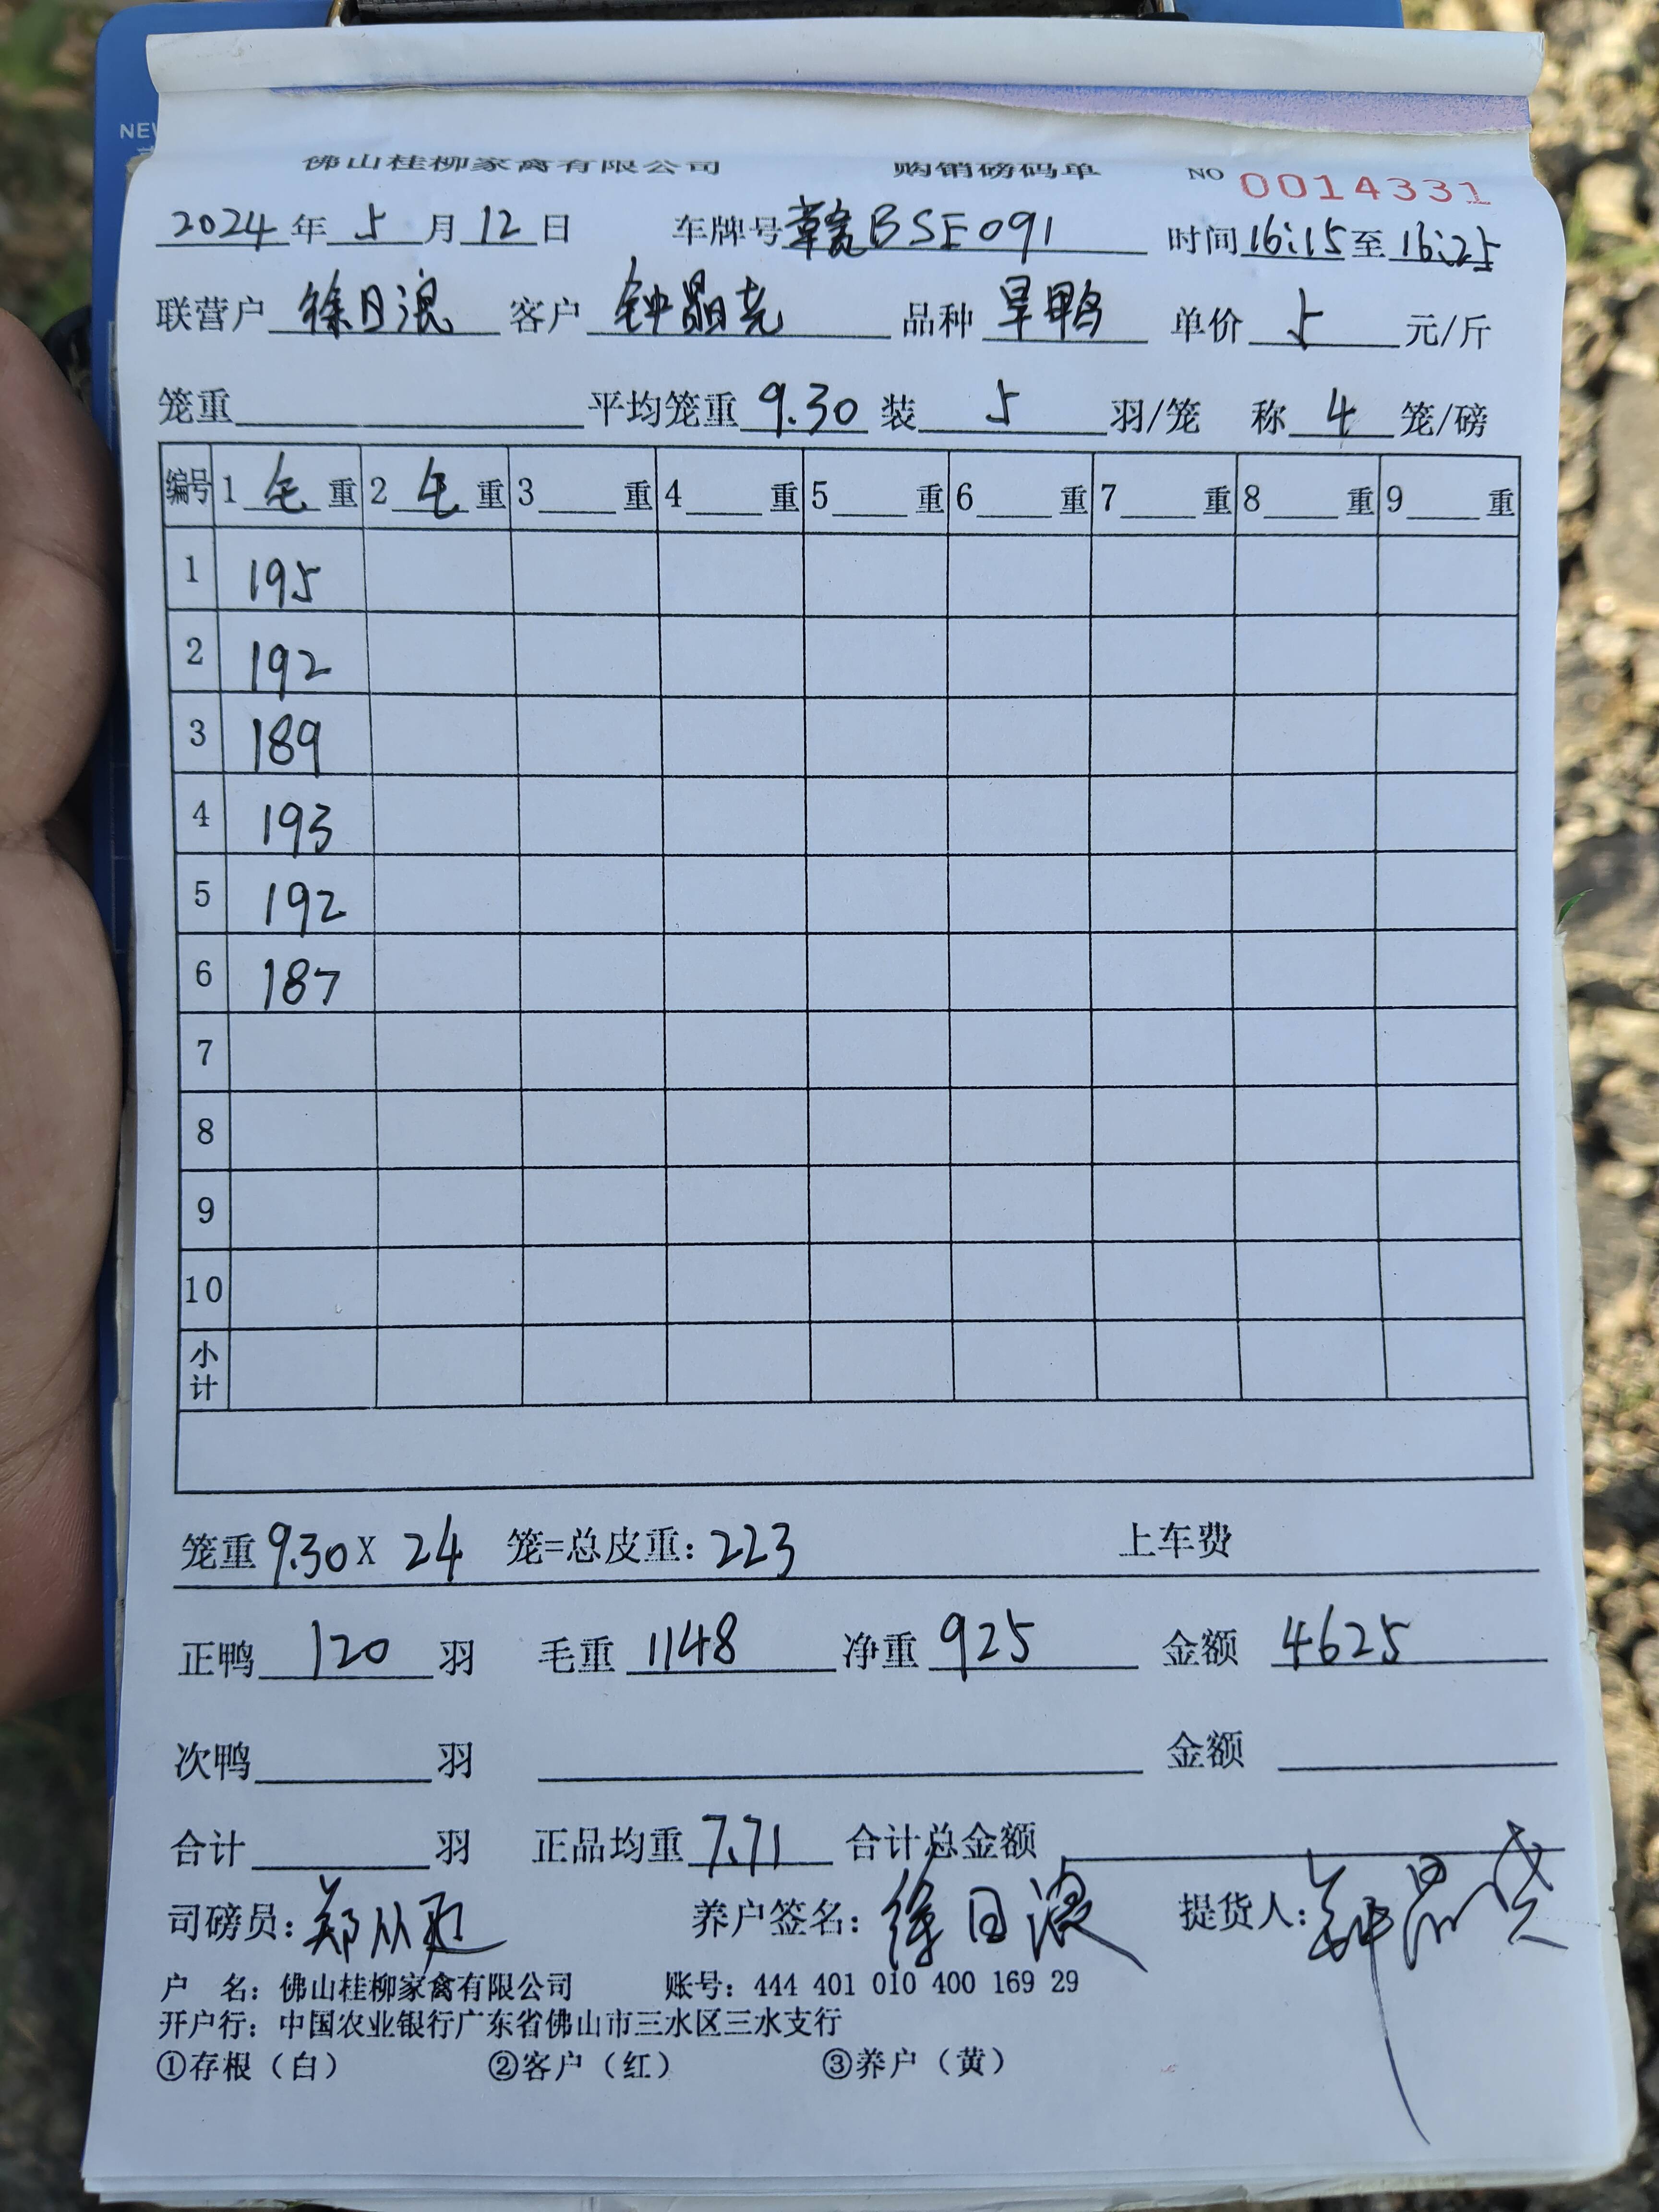 NEW
佛山桂柳家禽有限公司 购销磅码单 NO 0014331
2024年5月12日 车牌号赣BSE091 时间16:15至16:25
联营户 徐日浪 客户 钟晶亮 品种 旱鸭 单价 5 元/斤
笼重 平均笼重 9.30 装 5 羽/笼 称 4 笼/磅
编号 1 毛 重 2 毛 重 3 重 4 重 5 重 6 重 7 重 8 重 9 重
1 195
2 192
3 189
4 193
5 192
6 187
7
8
9
10
小计
笼重 9.30 X 24 笼=总皮重: 223 上车费
正鸭 120 羽 毛重 1148 净重 925 金额 4625
次鸭 羽 金额
合计 羽 正品均重 7.71 合计总金额
司磅员: 郑从 养户签名: 徐日浪 提货人: 钟晶亮
户 名: 佛山桂柳家禽有限公司 账号: 444 401 010 400 169 29
开户行: 中国农业银行广东省佛山市三水区三水支行
①存根（白） ②客户（红） ③养户（黄）